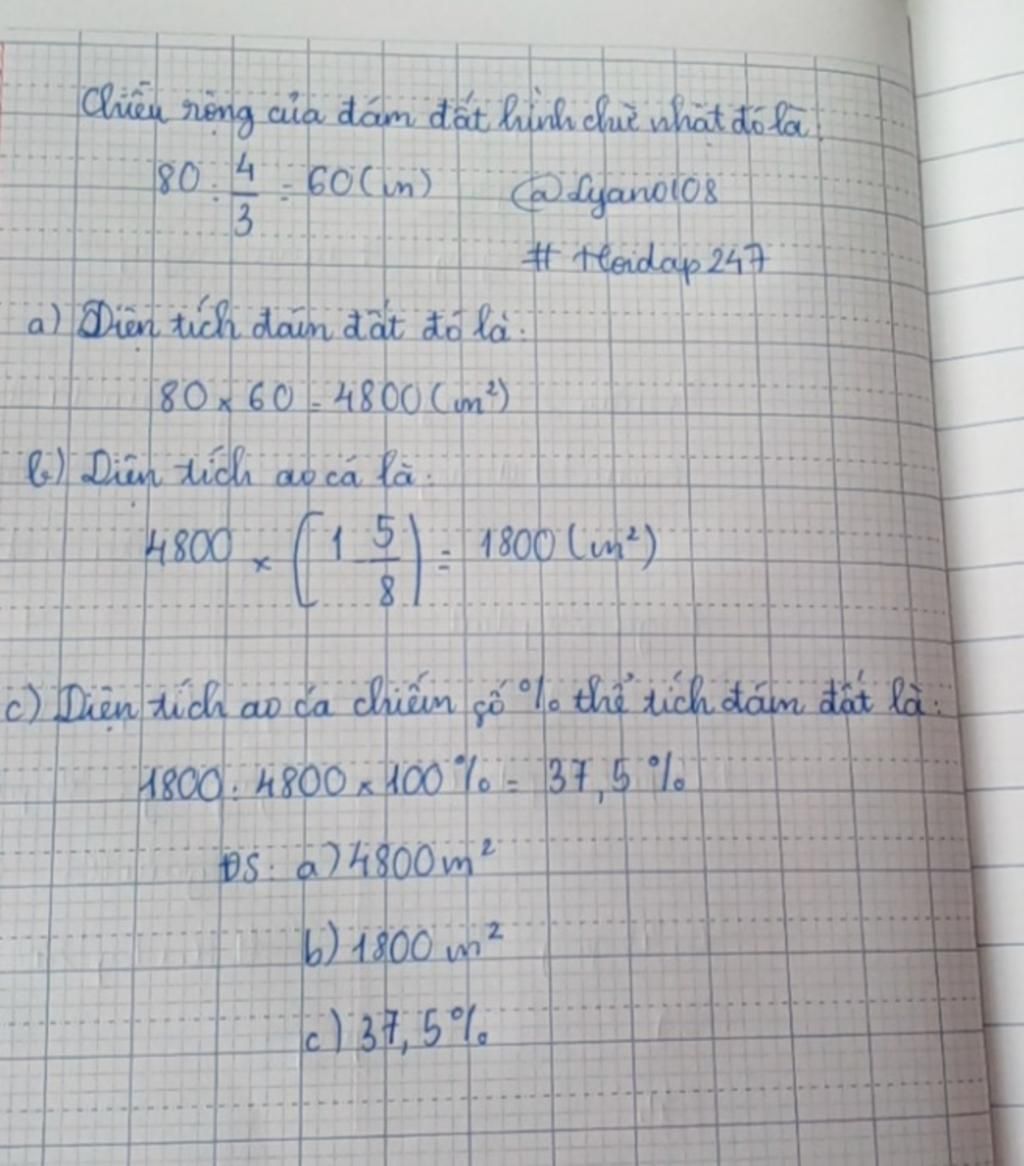 Chiều rộng của đám đất hình chữ nhật đó là:
80 : 4/3 = 60 (m) @Lyano108
# Hoidap247
a) Diện tích đám đất đó là:
80 x 60 = 4800 (m²)
b) Diện tích ao cá là:
4800 x (1 - 5/8) = 1800 (m²)
c) Diện tích ao cá chiếm số % thể tích đám đất là:
1800 : 4800 x 100% = 37,5 %
ĐS: a) 4800 m²
b) 1800 m²
c) 37,5%